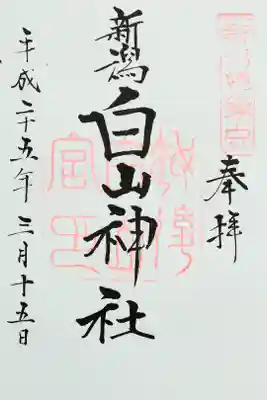 奉拝
新潟白山神社
平成二十五年三月十五日